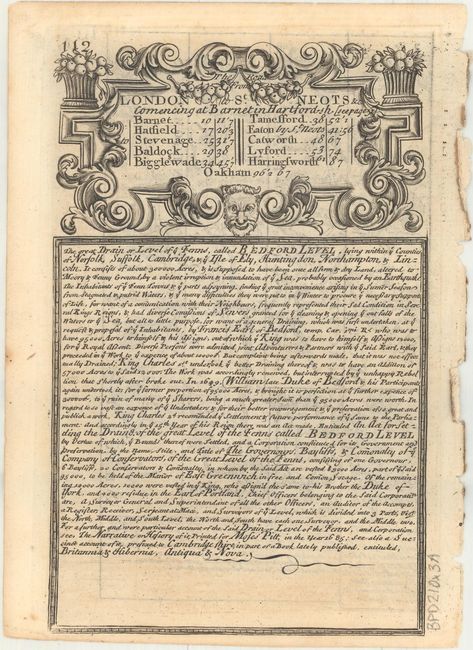 112
The Road
From
LONDON to St. NEOTS &c
Comencing at Barnet in Hartford-sh. (see page
Barnet .... 10 11 7
Hatfield ..... 17 20 3
to Stevenage ... 25 31 7
Baldock .... 29 38
Biggleswade 34 45
Tamesford. 38 52 1
Eaton by St. Neots 41 56
Catworth ... 48 67
Lyford .... 53 74
Harringsworth 87
Oakham 96 2 67
The great Drain or Level of ye Fenns, called BEDFORD LEVEL, lying within ye Counties
of Norfolk, Suffolk, Cambridge, wth ye Isle of Ely, Huntingdon, Northampton, & Lin-
coln. It consists of about 300,000 Acres, & is supposed to have been once all firm & dry Land, altered to
Moory & Fenny Ground by a violent irruption & inundation of ye Sea, probably occasioned by an Earthquake.
The Inhabitants of ye Fenn Towns & ye parts adjoyning, finding ye great inconvenience arising in ye Sumer Season
from stagnated & putrid Waters, & ye many difficulties they were put to in Winter to procure ye necessary supports
of Life, for want of a comunication with their Neighbours, frequently represented their sad Condition in Seve-
ral Kings Reigns; & had diverse Comissions of Sewers granted for ye cleansing & opening ye out falls of the
Waters to ye Sea, but all to little purpose, for want of a general Draining, which was first undertaken, at ye
request & proposal of ye Inhabitants, by Francis Earl of Bedford, temp. Car. 1mi R.s who was to
have 95,000 Acres to himself & his Assigns, out of which ye King was to have to himself & Assigns 12000,
for a Royal Assent. Diverse Persons were admitted into Adventurers & Partners with ye Said Earl, & they
proceeded in ye Work to ye expence of about 100000£. But complaint being afterwards made, that it was not effec-
tually Drained; King Charles 1st undertook ye better Draining thereof & was to have an addition of
57000 Acres to ye Said 95000. The Work was accordingly renewed, but interrupted by ye unhappy Rebel-
lion that shortly after broke out. In 1649, William late Duke of Bedford & his Participants
again undertook it, on ye former proportion of 95,000 Acres, & brought it to perfection at ye further expence of
200000£. to ye ruin of many of ye Sharers, being a much greater Sum than ye 95,000 Acres were worth. In
regard to so imense expence of ye Undertakers & for their better encouragement & ye preservation of so great and
publick a work, King Charles 2d recomended ye Settlement & future performance of ye Same to the Parlia-
ment: and accordingly in ye 15th Year of his Reign there was an Act made, Entituled An Act for Set-
tling the Draining of the great Level of the Fenns called BEDFORD LEVEL
by Vertue of which, ye Bounds thereof were Settled, and a Corporation constituted for its Government and
preservation, by the Name, Stile, and Title of The Governour, Bayliffs, & Comonalty of ye
Company of Conservators of the Great Level of the Fenns, consisting of one Governour,
6 Bayliffs, 20 Conservators & Comonalty, in whom by the Said Act are vested 83000 Acres, part of ye Said
95,000, to be held of the Manor of East Greenwich in free and Comon Soccage. Of the remain-
ing 12000 Acres, 10000 were vested in ye King, who assigned the Same to his Brother the Duke of
York, and 2000 residue in the Earl of Portland. Chief Officers belonging to the Said Corporation
are, a Surveyor General and Superintendent of all the other Officers, an Auditor of the Accompts,
a Register, Receiver, Serjeant at Mace, and Surveyors of ye Level, which is divided into 3 Parts, Vizt.
the North, Middle, and South Level; the North and South have each one Surveyor, and the Middle, two.
For a further, and more particular account of the Said Drain or Level of the Fenns, and Corporation
see The Narrative or History of it, Printed for Moses Pitt, in the Year 1685. See also a Suc-
cinct account of it, prefixed to Cambridgeshire, in part of a Book lately published, entituled,
Britannia & Hibernia, Antiqua & Nova.
BPD210a3A